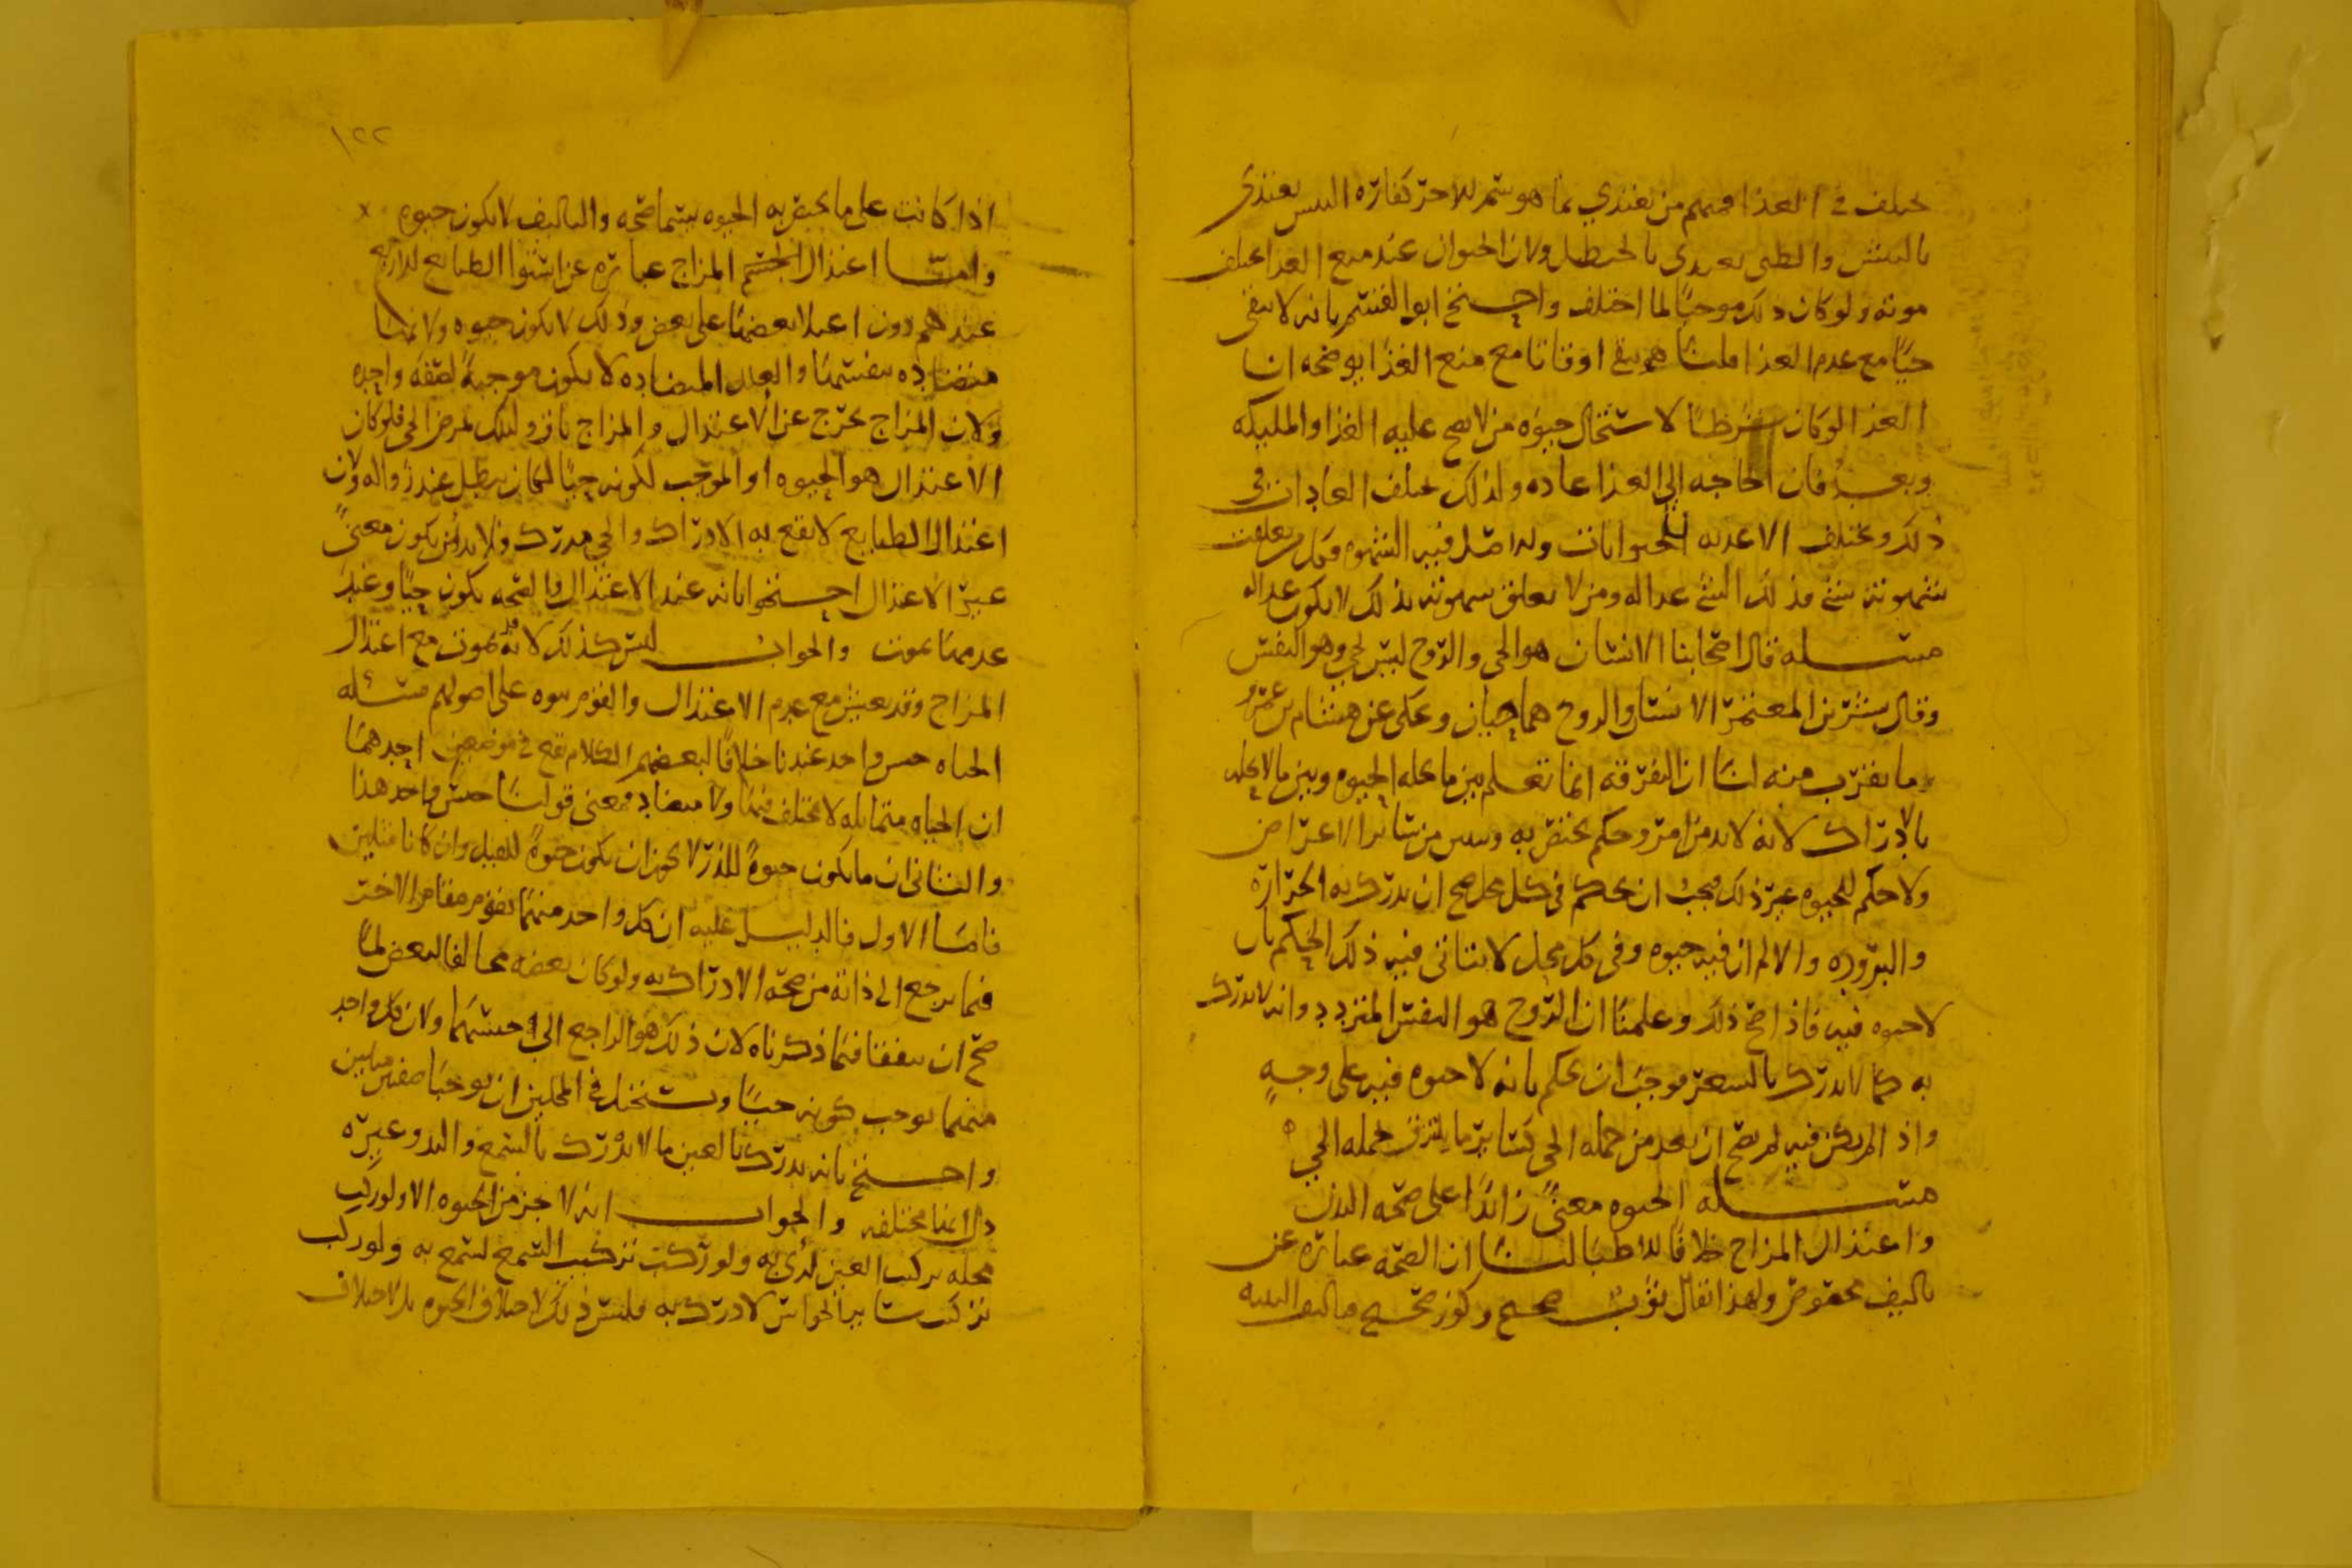 في الغذا فمنهم من يغتذي بما هو سم للاخر كفاره البيش يغتذي
بالبيش والظبي يغتذي بالحنظل ولان الحيوان عند منع الغذا يختلف
موته ولو كان ذلك موجبًا لما اختلف واحتج ابو القسم بانه لا يبقى
حيًا مع عدم الغذا قلنا هو يبقى اوقاتا مع منع الغذا يوضحه ان
الغذا لو كان شرطًا لاستحال حيوه من لا يصح عليه الغذا والمليكه
وبعد فان الحاجه الى الغذا عاده ولذلك يختلف العادات في
ذلك ويختلف الاغديه للحيوانات والاصل فيه الشهوه فكل من تعلقت
شهوته بشي فذلك الشي غدا له ومن لا يتعلق شهوته بذلك لا يكون غدا له
مسله قال اصحابنا الانسان هو الحي والروح ليس بحي وهو النفس
وقال بشر بن المعتمر الانسان والروح هما حيان وحكى عن هشام بن عمرو
ما يقرب منه لنا ان التفرقه انما تعلم بين ما يحله الحيوه وبين ما لا يحله
بالادراك لانه لا بد من امر وحكم يختص به ويبين من سائر الاعراض
ولا حكم للحيوه غير ذلك فيجب ان يحكم في كل محل صح ان يدرك به الحراره
والبروده والالم ان فيه حيوه وفي كل محل لا يتاتى فيه ذلك الحكم بان
لا حيوه فيه فاذا صح ذلك وعلمنا ان الروح هو النفس المتردد وانه لا يدرك
به كما لا يدرك بالشعر فوجب ان يحكم بانه لا حيوه فيه على وجهٍ
واذا لم يكن فيه لم يصح ان يعد من جمله الحي كسائر ما جمله الحي
مسله الحيوه معنىً زائدًا على صحه البدن
واعتدال المزاج خلافًا للاطبا لنا ان الصحه عباره عن
تاليف مخصوص ولهذا يقال ثوب صحيح وكوز صحيح فتاليف البنيه
١٢٢
اذا كانت على ما يختص به الحيوه يسما صحه والتاليف لا يكون حيوه
واما اعتدال المزاج عباره عن استوا الطبايع الاربع
عندهم دون اعتلا بعضها على بعض وذلك لا يكون حيوه ولانها
متضاده بنفسها والعلل المتضاده لا يكون موجبةً لصفه واحده
ولان المزاج يخرج عن الاعتدال والمزاج لمرض الحي فلو كان
الاعتدال هو الحيوه او الموجب لكونه حيًا لكان يبطل عند زواله ولان
اعتدال الطبايع لا يقع به الادراك والحي مدرك فلا بد من يكون معنىً
غير الاعتدال احتجوا بانه عند الاعتدال والصحه يكون حيًا وعند
عدمها يموت والجواب ليس كذلك لانه قد يموت مع اعتدال
المزاج وقد يعيش مع عدم الاعتدال والقوم بنوه على اصولهم مسئله
الحياه جنس واحد عندنا خلافًا لبعضهم الكلام يقع في موضعين احدهما
ان الحياه متماثله لا يختلف فيها ولا متضاد فمعنى قولنا جنس واحد هذا
والثاني ان ما يكون حيوةً للذر لا يجوز ان يكون حيوةً للفيل وان كانا مثلين
فاما الاول فالدليل عليه ان كل واحد منهما يقوم مقام الاخر
فيما يرجع الى ذاته من صحه الادراك به ولو كان بعضه مخالفا لبعض لما
صح ان يتفقا فيما ذكرناه لان ذلك هو الراجع الى جنسهما ولان كل واحد
منهما يوجب كونه حيًا ويستحيل في المحلين ان يوجبا صفتين مثلين
واحتج بانه يدرك بالعين ما لا يدرك بالسمع واليد وغيره
دل انها مختلفه والجواب انه لا جز من الحيوه الا ولو ركب
محله تركيب العين لرُئ به ولو ركبت تركيب السمع لسمع به ولو ركب
تركيب سائر الحواس لادرك به فليس ذلك لاختلاف الحيوه بل لاختلاف